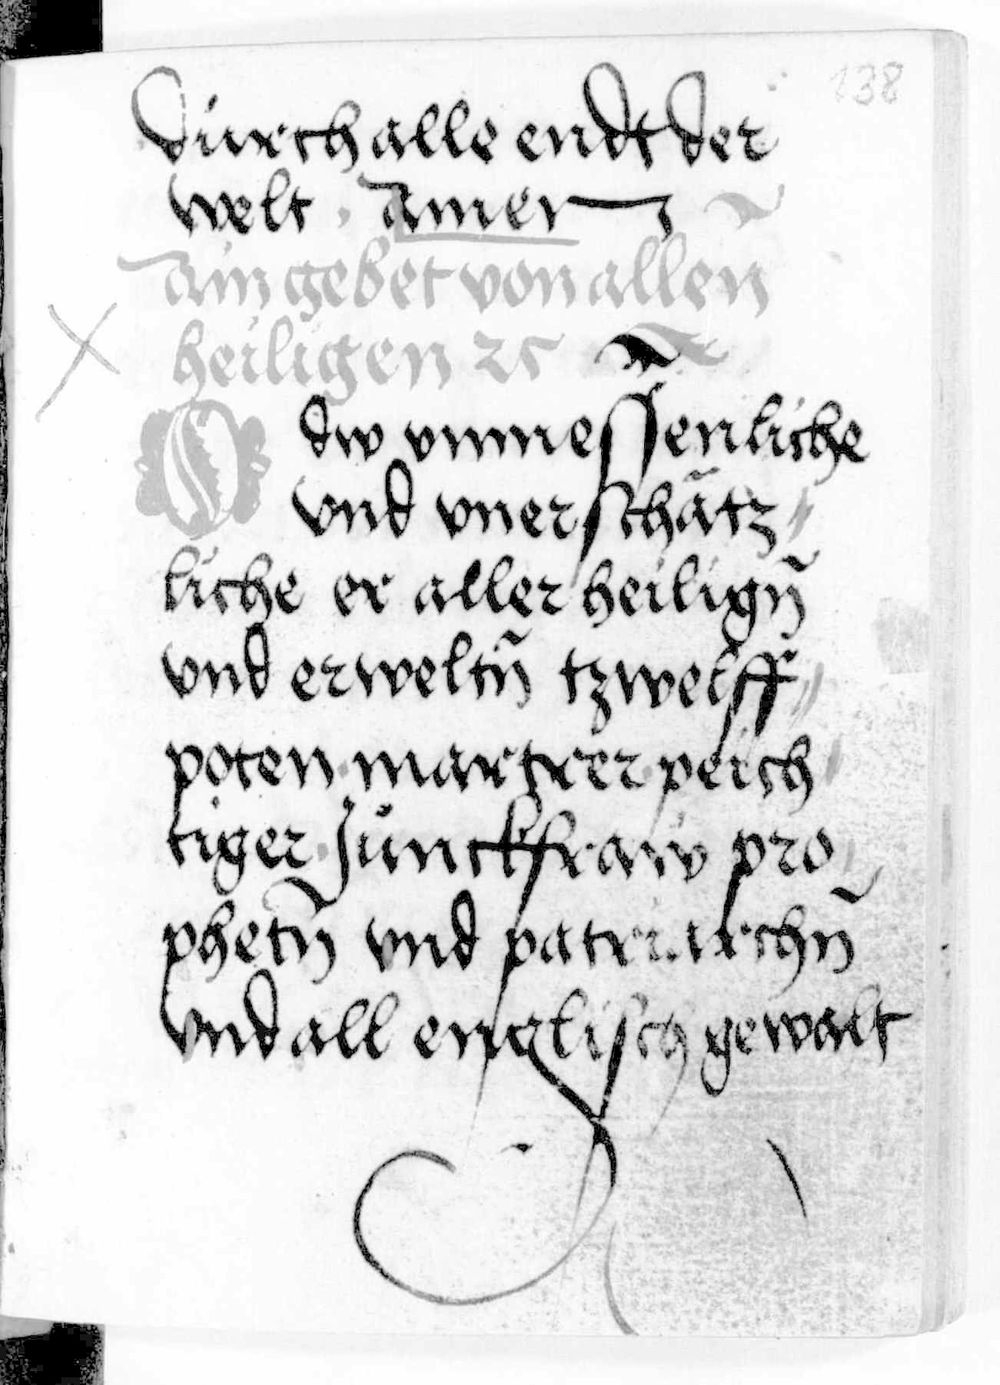 138
durch alle endt der
welt · Amen
Ain gebet von allen
heiligen ⁊c
O dw vnmessenliche
vnd vnerschätz
liche er aller heilign̄
vnd erweltn̄ tzwelff
poten martrer peich
tiger Junckfraw pro
phetn̄ vnd patriarchn̄
vnd all englisch gewalt